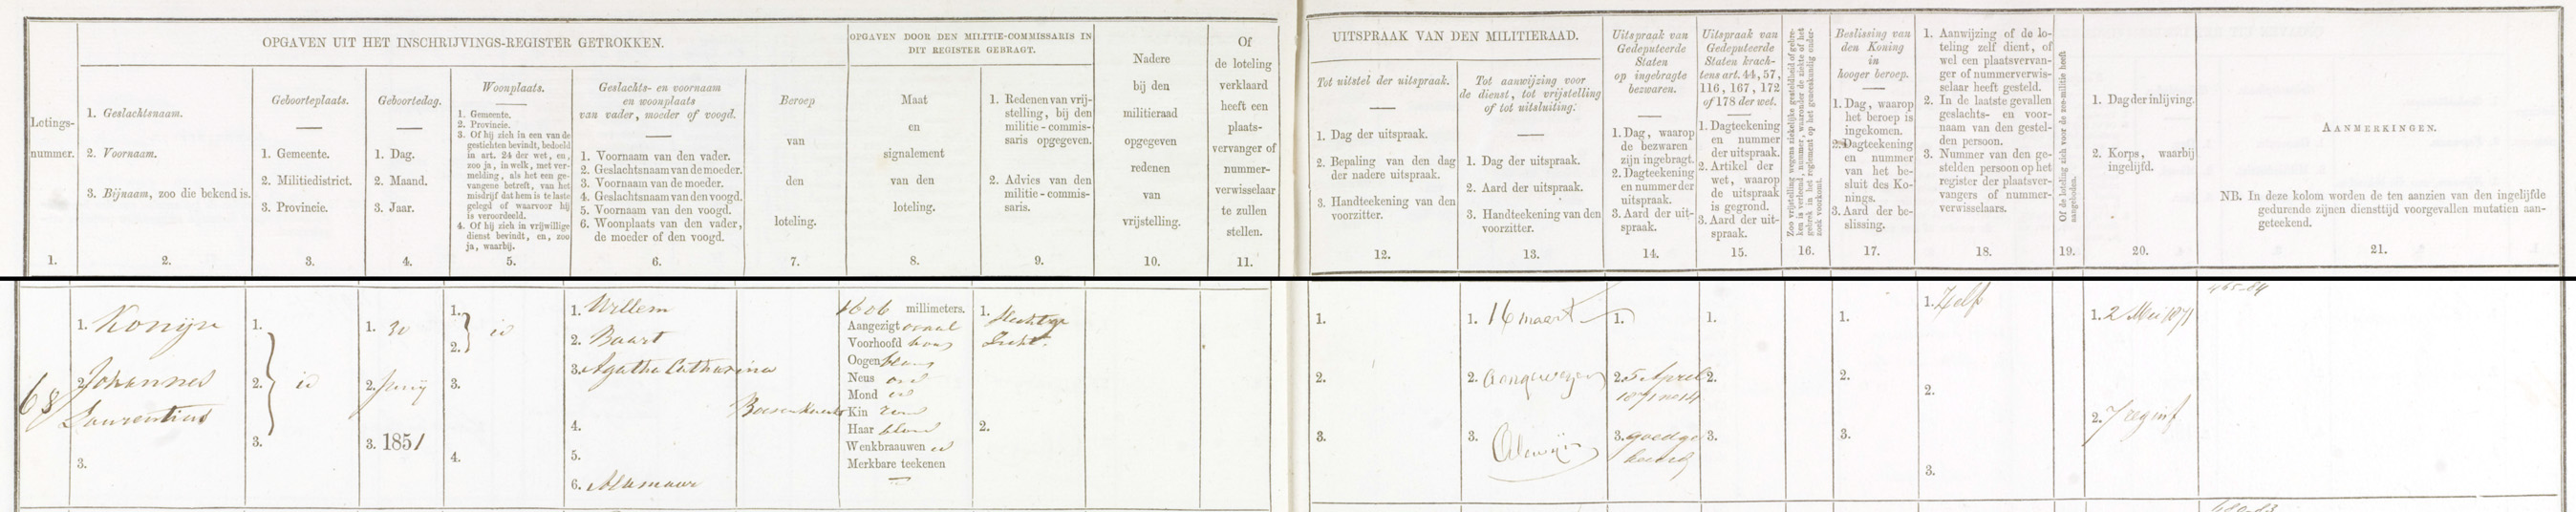 OPGAVEN UIT HET INSCHRIJVINGS-REGISTER GETROKKEN.
Lotings-
nummer.
1.
1. Geslachtsnaam.
2. Voornaam.
3. Bijnaam, zoo die bekend is.
2.
Geboorteplaats.
1. Gemeente.
2. Militiedistrict.
3. Provincie.
3.
Geboortedag.
1. Dag.
2. Maand.
3. Jaar.
4.
Woonplaats.
1. Gemeente.
2. Provincie.
3. Of hij zich in een van de
gestichten bevindt, bedoeld
in art. 24 der wet, en,
zoo ja, in welk, met ver-
melding, als het een ge-
vangene betreft, van het
misdrijf dat hem is te laste
gelegd of waarvoor hij
is veroordeeld.
4. Of hij zich in vrijwillige
dienst bevindt, en, zoo
ja, waarbij.
5.
Geslachts- en voornaam
en woonplaats
van vader, moeder of voogd.
1. Voornaam van den vader.
2. Geslachtsnaam van de moeder.
3. Voornaam van de moeder.
4. Geslachtsnaam van den voogd.
5. Voornaam van den voogd.
6. Woonplaats van den vader,
de moeder of den voogd.
6.
Beroep
van
den
loteling.
7.
OPGAVEN DOOR DEN MILITIE-COMMISSARIS IN
DIT REGISTER GEBRAGT.
Maat
en
signalement
van den
loteling.
8.
1. Redenen van vrij-
stelling, bij den
militie-commis-
saris opgegeven.
2. Advies van den
militie-commis-
saris.
9.
Nadere
bij den
militieraad
opgegeven
redenen
van
vrijstelling.
10.
Of
de loteling
verklaard
heeft een
plaats-
vervanger of
nummer-
verwisselaar
te zullen
stellen.
11.
UITSPRAAK VAN DEN MILITIERAAD.
Tot uitstel der uitspraak.
1. Dag der uitspraak.
2. Bepaling van den dag
der nadere uitspraak.
3. Handteekening van den
voorzitter.
12.
Tot aanwijzing voor
de dienst, tot vrijstelling
of tot uitsluiting:
1. Dag der uitspraak.
2. Aard der uitspraak.
3. Handteekening van den
voorzitter.
13.
Uitspraak van
Gedeputeerde
Staten
op ingebragte
bezwaren.
1. Dag, waarop
de bezwaren
zijn ingebragt.
2. Dagteekening
en nummer der
uitspraak.
3. Aard der uit-
spraak.
14.
Uitspraak van
Gedeputeerde
Staten krach-
tens art. 44, 57,
116, 167, 172
of 178 der wet.
1. Dagteekening
en nummer
der uitspraak.
2. Artikel der
wet, waarop
de uitspraak
is gegrond.
3. Aard der uit-
spraak.
15.
16.
Beslissing van
den Koning
in
hooger beroep.
1. Dag, waarop
het beroep is
ingekomen.
2. Dagteekening
en nummer
van het be-
sluit des Ko-
nings.
3. Aard der be-
slissing.
17.
1. Aanwijzing of de lo-
teling zelf dient, of
wel een plaatsvervan-
ger of nummerverwis-
selaar heeft gesteld.
2. In de laatste gevallen
geslachts- en voor-
naam van den gestel-
den persoon.
3. Nummer van den ge-
stelden persoon op het
register der plaatsver-
vangers of nummer-
verwisselaars.
18.
Of de loteling zich voor de zee-militie heeft
aangeboden.
19.
1. Dag der inlijving.
2. Korps, waarbij
ingelijfd.
20.
AANMERKINGEN.
NB. In deze kolom worden de ten aanzien van den ingelijfde
gedurende zijnen diensttijd voorgevallen mutatien aan-
geteekend.
21.
68
1. Konijn
2. Johannes
Laurentius
3.
1.
2. id
3.
1. 30
2. Junij
3. 1851
1.
2. id
3.
4.
1. Willem
2. Baart
3. Agatha Catharina
4.
5.
6. Alkmaar
1606 millimeters.
Aangezigt ovaal
Voorhoofd hoog
Oogen blauw
Neus ord
Mond id
Kin rond
Haar blond
Wenkbraauwen id
Merkbare teekenen
1.
2.
1.
2.
3.
1. 16 maart
2. aangewezen
3.
1.
2. 5 April
1871 no 14
3. goedge
keurd
1.
2.
3.
1.
2.
3.
1. Zelf
2.
3.
1. 2 Mei 1871
2. 7 reg inf